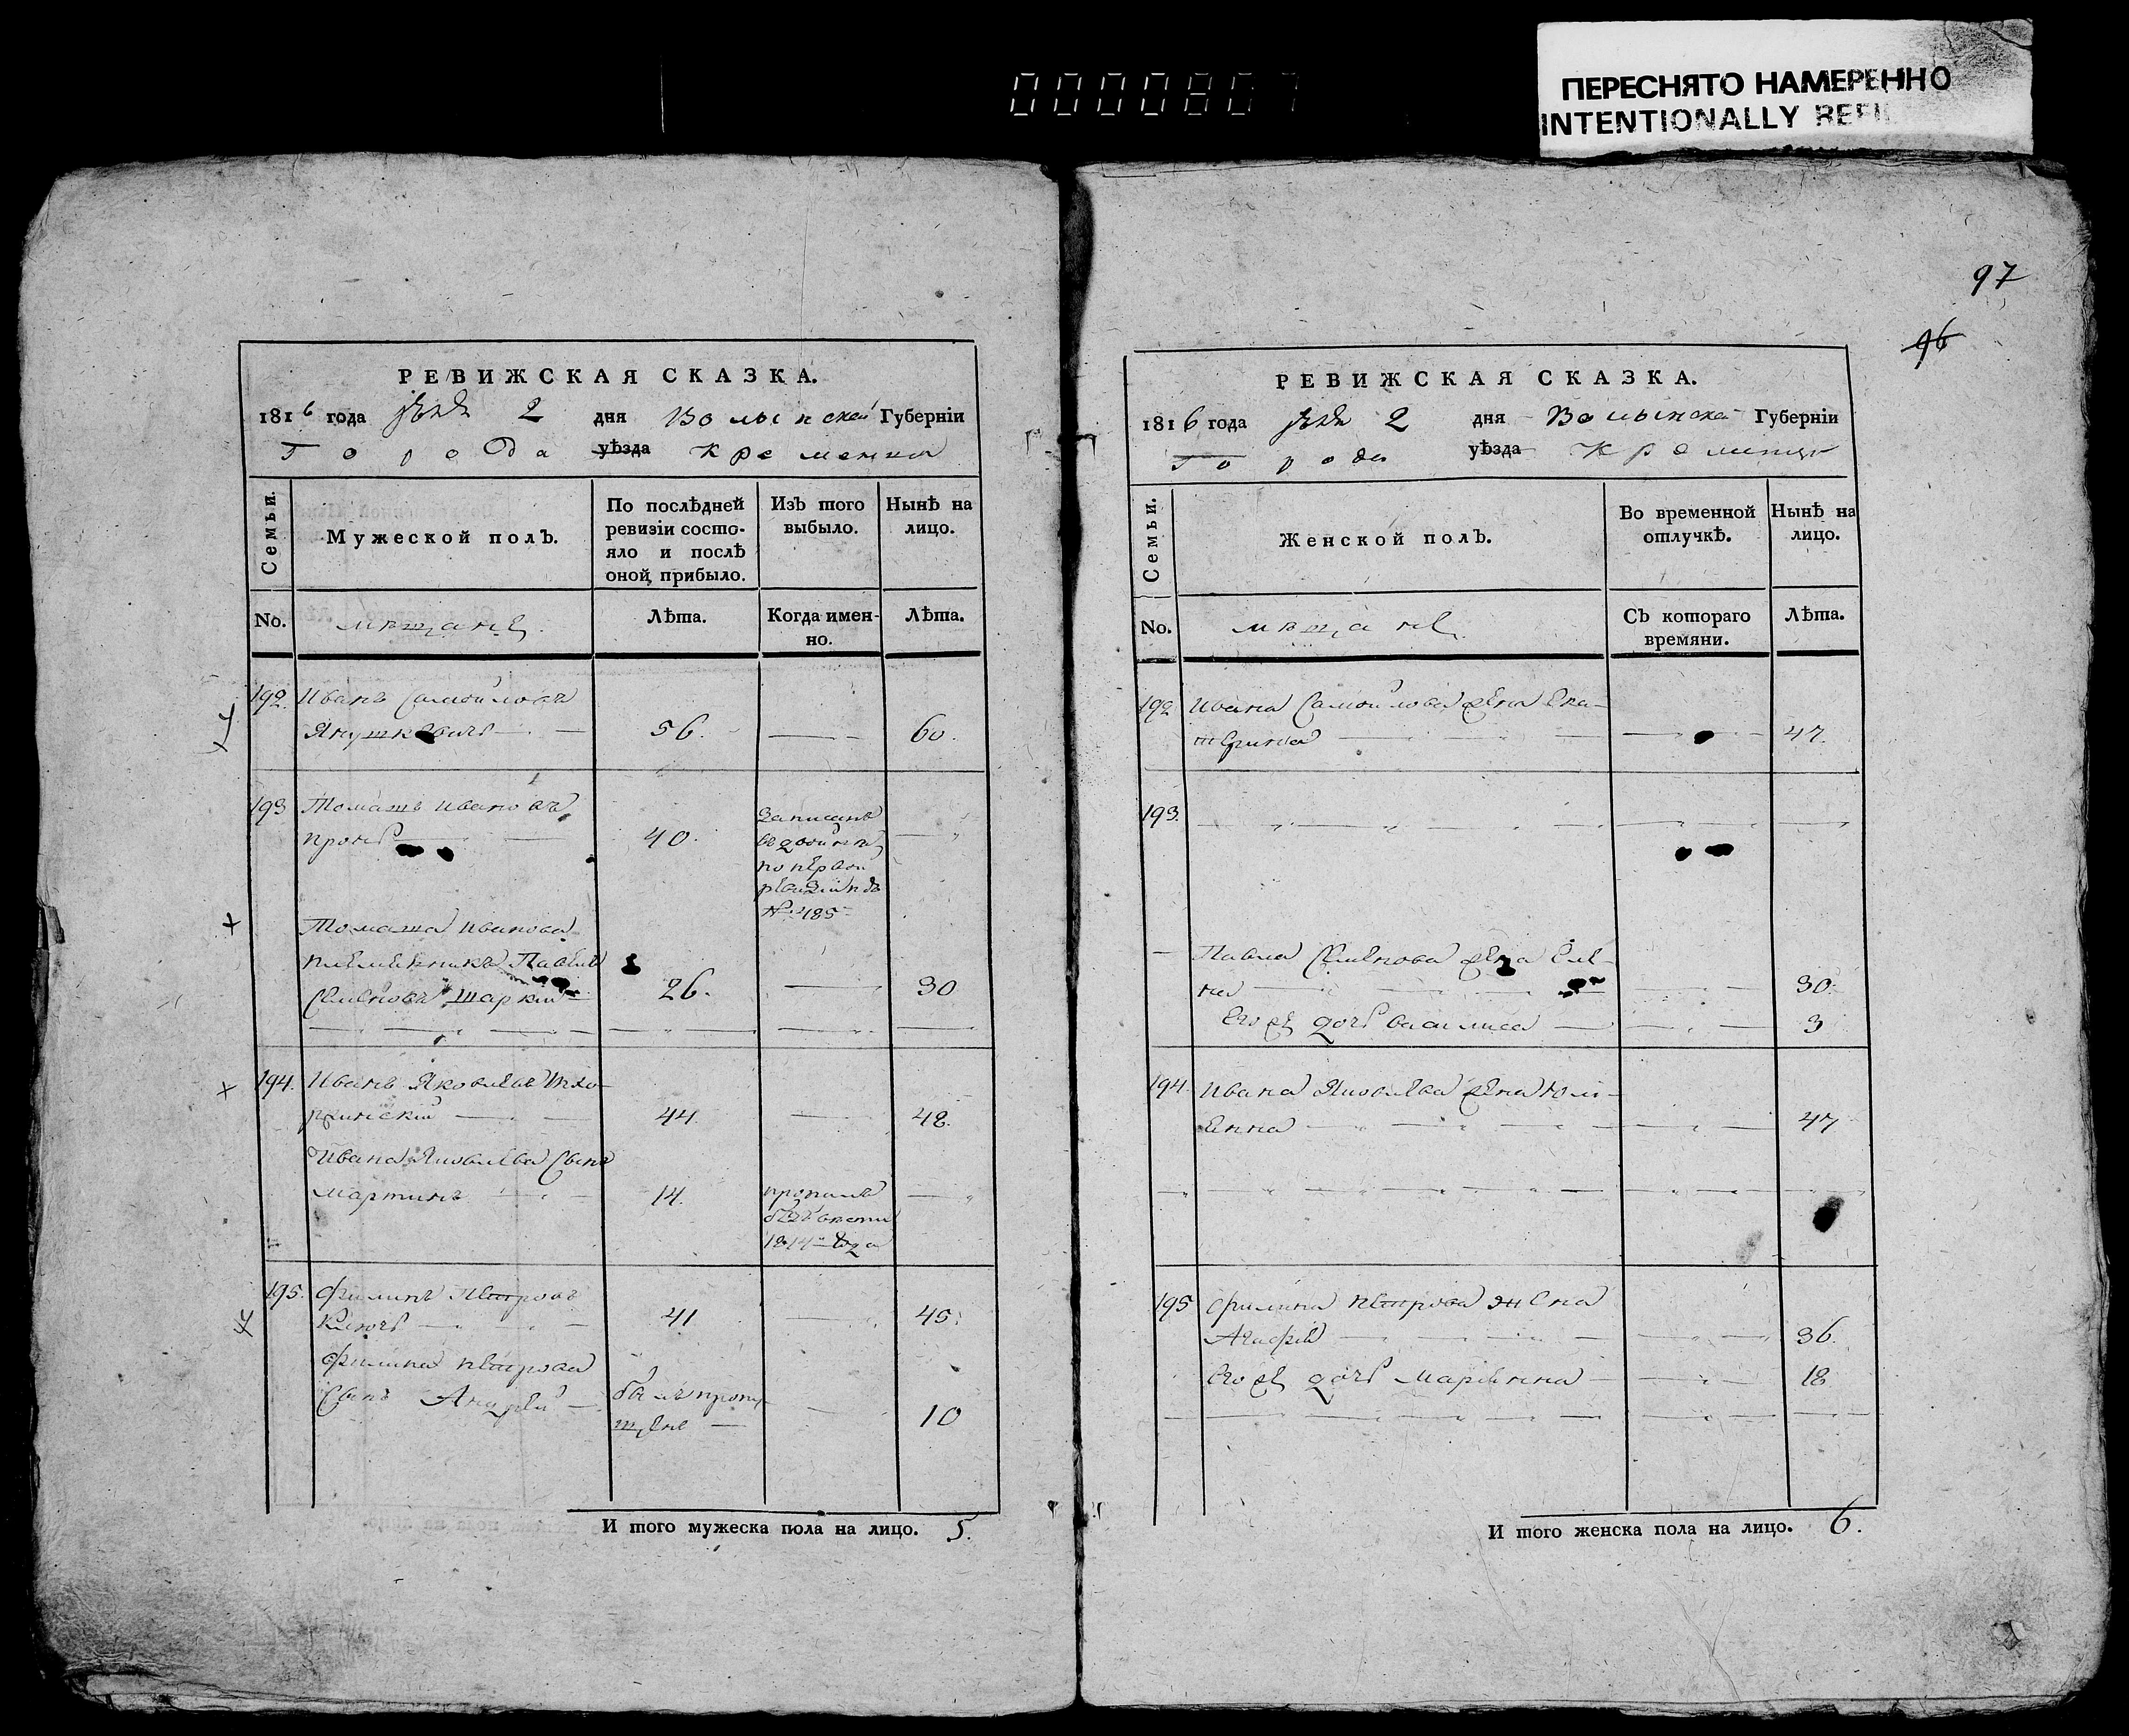 0000807
ПЕРЕСНЯТО НАМЕРЕННО
INTENTIONALLY REFI
97
96
РЕВИЖСКАЯ СКАЗКА.
1816 года 2 дня Волынской Губерніи
Города уѣзда Кременца
Семьи.
Мужеской полъ.
По послѣдней ревизіи состо-
яло и послѣ
оной прибыло.
Изъ того
выбыло.
Нынѣ на
лицо.
No.
мѣщане
Лѣта.
Когда имен-
но.
Лѣта.
192. Иванъ Самойловъ
Янушкевичъ 56. 60.
193 Томашъ Ивановъ
40.
Записанъ
въ двойнѣ
по первой
ревизіи подъ
№ 485
Томаша Иванова
племенникъ Павелъ
Семеновъ 26. 30
194. Иванъ Яковлевъ
44. 48.
Ивана Яковлева сынъ
Мартинъ 14.
пропалъ
безъ вести
1814 года
195. Филипъ Петровъ
41 45.
Филипа Петрова
сынъ Андрей
былъ пропу-
щенъ 10
И того мужеска пола на лицо. 5.
РЕВИЖСКАЯ СКАЗКА.
1816 года 2 дня Волынской Губерніи
Города уѣзда Кременца
Семьи.
Женской полъ.
Во временной
отлучкѣ.
Нынѣ на
лицо.
No.
мѣщане
Съ котораго
времяни.
Лѣта.
192 Ивана Самойлова жена Ека-
терина 47.
193.
Павла Семенова жена Еле-
на 30.
Его же дочь Василиса 3
194. Ивана Яковлева жена Юлі-
енна 47
195 Филипа Петрова жена
Агафія 36.
Его же дочь Маріянна 18
И того женска пола на лицо. 6.